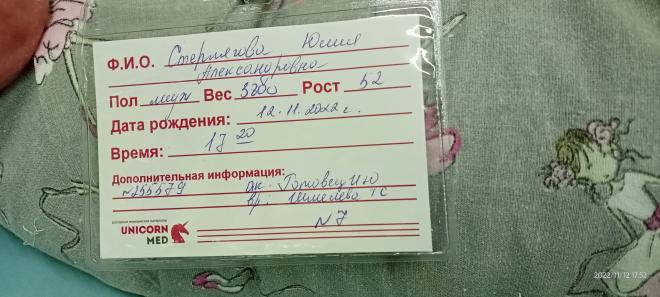 Ф.И.О. Стерлягова Юлия
Александровна
Пол муж Вес 3280 Рост 52
Дата рождения: 12.11.2022 г.
Время: 17 20
Дополнительная информация:
ак. Головец
вр. Шмелева
N 7
UNICORN
MED
2022/11/12 17:52